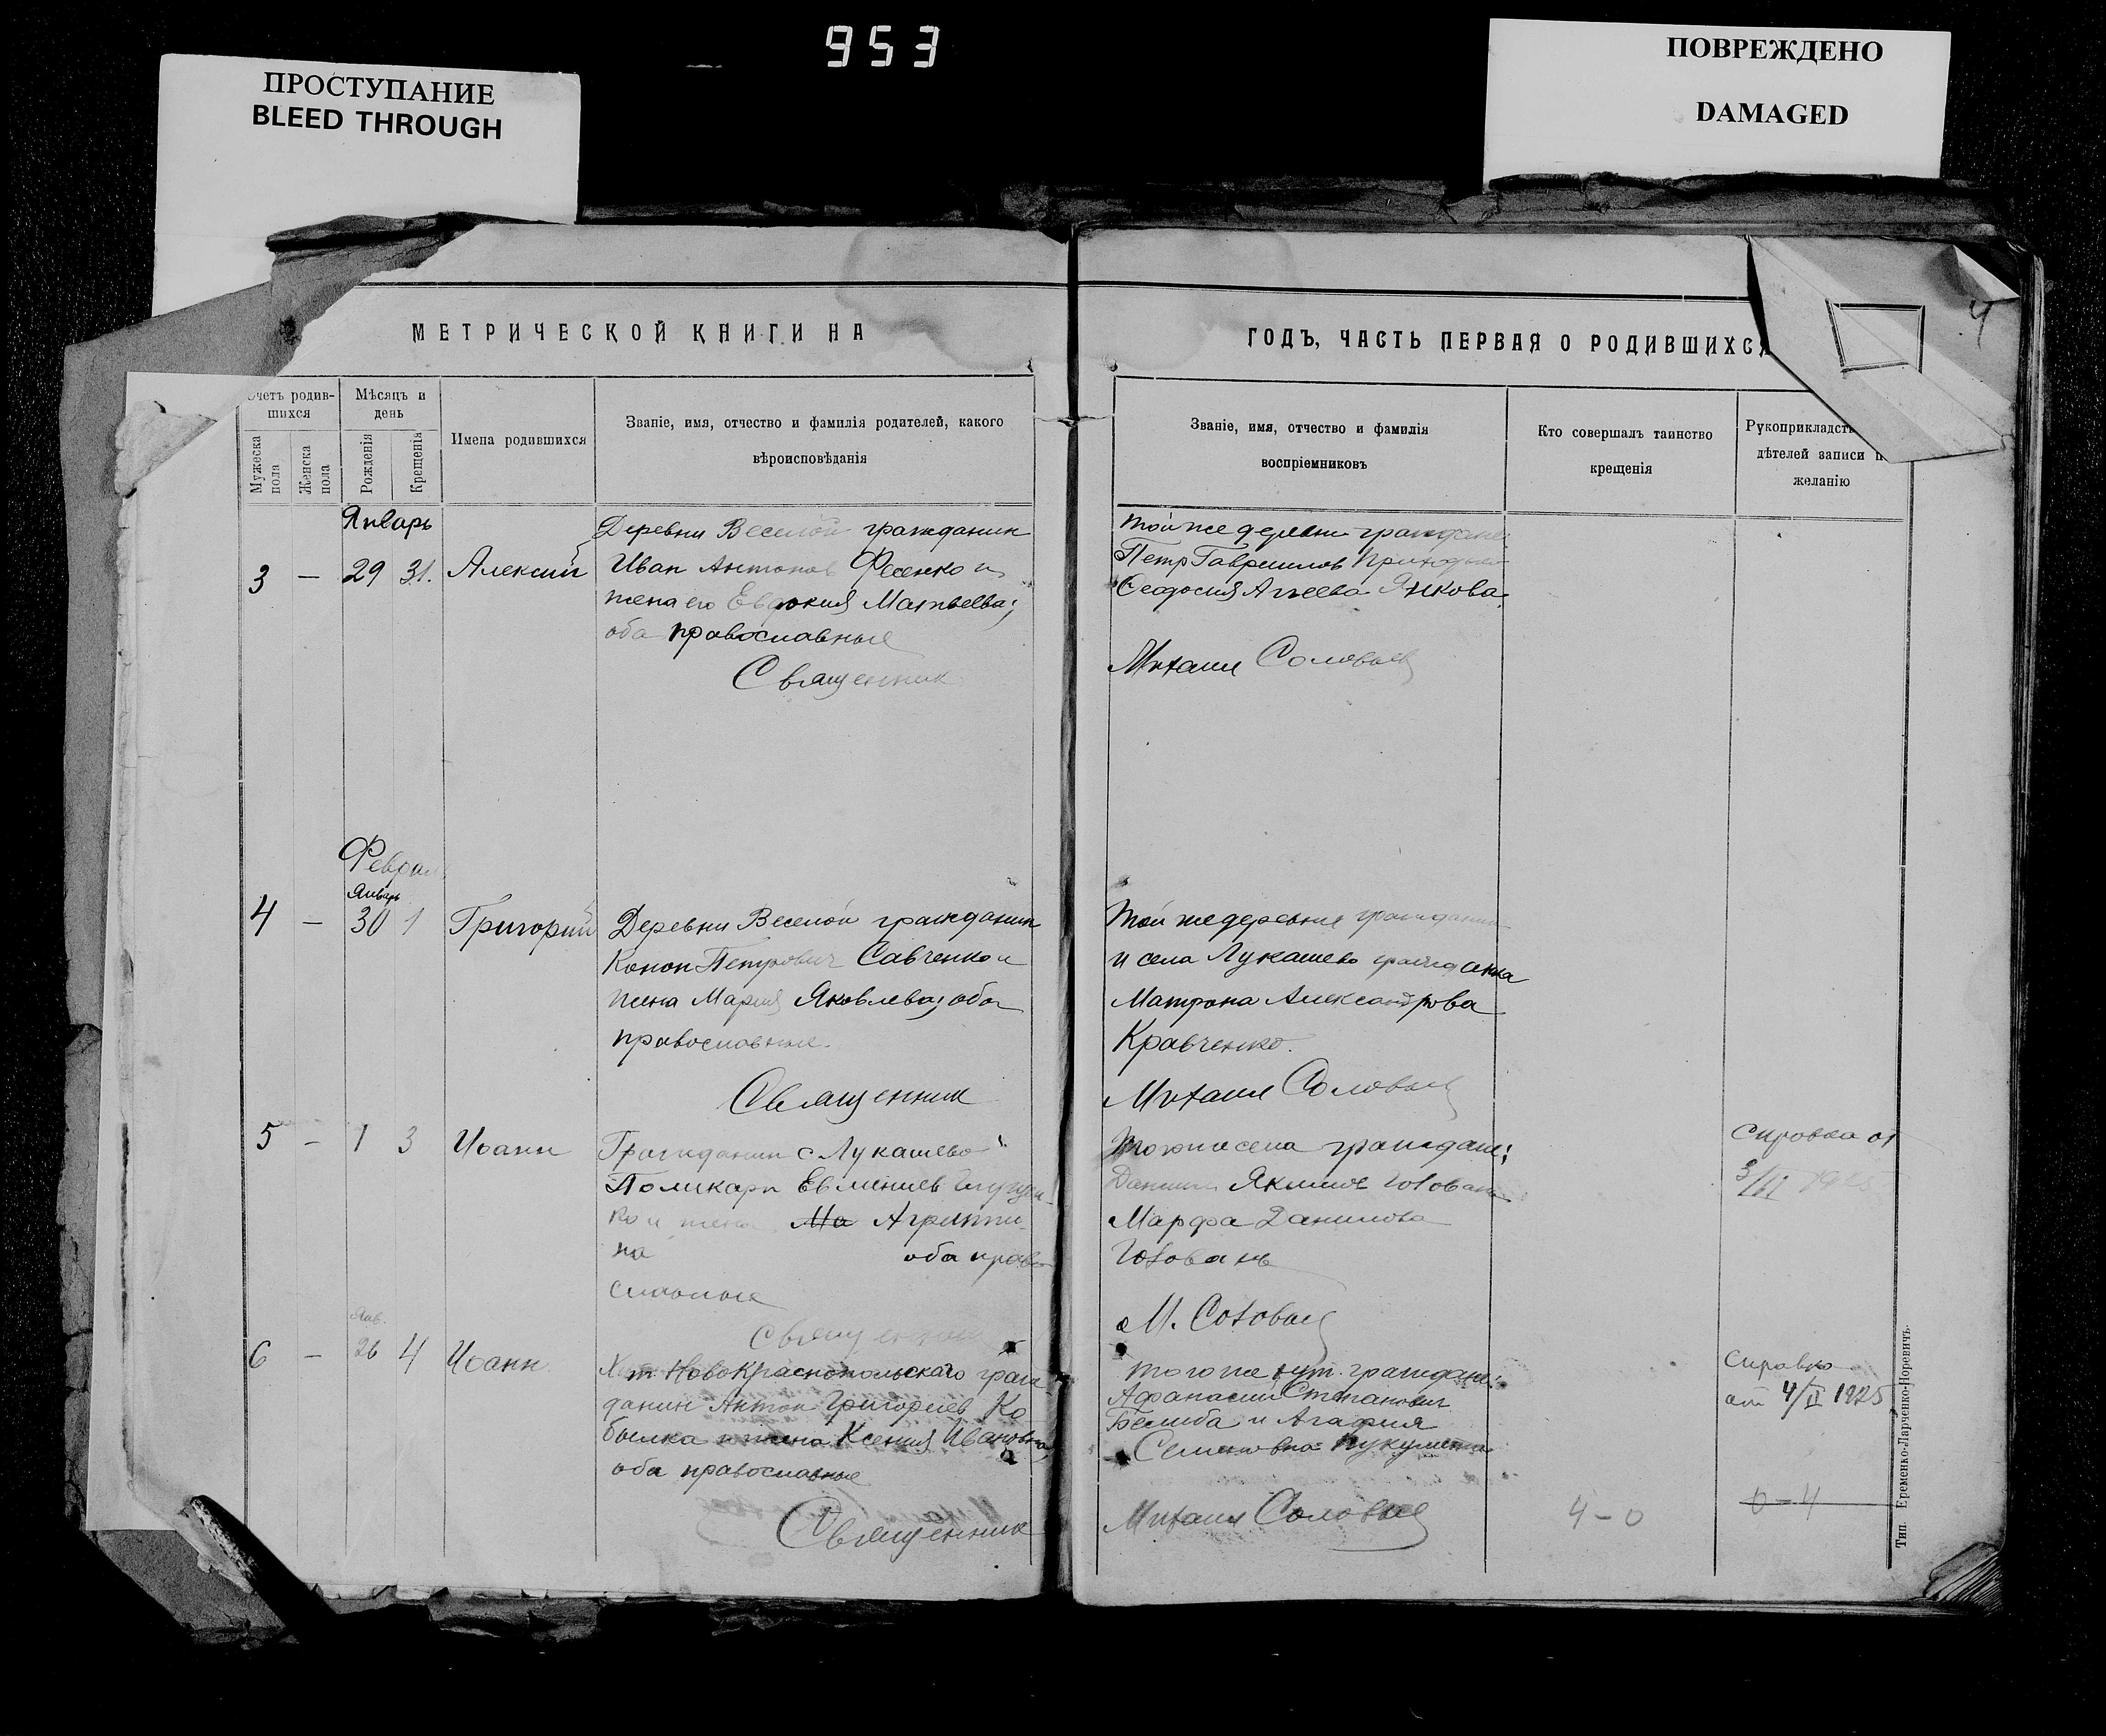 953
ПРОСТУПАНИЕ
BLEED THROUGH
ПОВРЕЖДЕНО
DAMAGED
4
МЕТРИЧЕСКОЙ КНИГИ НА
Счетъ родив-
шихся
Мѣсяцъ и
день
Мужеска
пола
Женска
пола
Рожденія
Крещенія
Имена родившихся
Званіе, имя, отчество и фамилія родителей, какого
вѣроисповѣданія
Январь
3 — 29 31. Алексий
Деревни Веселой гражданин
Иван Антонов Фесенко и
жена его Евдокия Матвеева;
оба православные
Священник
Феврал
Январь
4 — 30 1 Григорий
Деревни Веселой гражданин
Конон Петрович Савченко и
жена Мария Яковлева, оба
православные.
Священник
5 — 1 3 Иоанн
Гражданин с Лукашево
Поликарп Евмениев
ко и жена Ма Агриппи-
на оба право
славные
Священник
Янв.
6 — 26 4 Иоанн
Хут Новокраснопольскаго граж
данин Антон Григориев Ко
былка и жена Ксения Ивановна
оба православные
Священник
ГОДЪ, ЧАСТЬ ПЕРВАЯ О РОДИВШИХСЯ
Званіе, имя, отчество и фамилія
воспріемниковъ
Кто совершалъ таинство
крещенія
Рукоприкладст
дѣтелей записи п
желанію
той же деревни граждане
Петр Гавриилов Приходько
Феодосия Агеева Янкова.
Михаил Соловьев
Той же деревни гражданин
и села Лукашево гражданка
Матрона Александрова
Кравченко.
Михаил Соловьев
Того же села граждане:
Даниил Якимов Головань
Марфа Данилова
Головань
М. Соловьев
Справка от
3/II
того же хут. граждане:
Афанасий Степанович
Беліба и Агафия
Семеновна
Михаил Соловьев
Справка
от 4/II 1925
4-0
0-4
Тип. Еременко-Ларченко-Норевичъ.